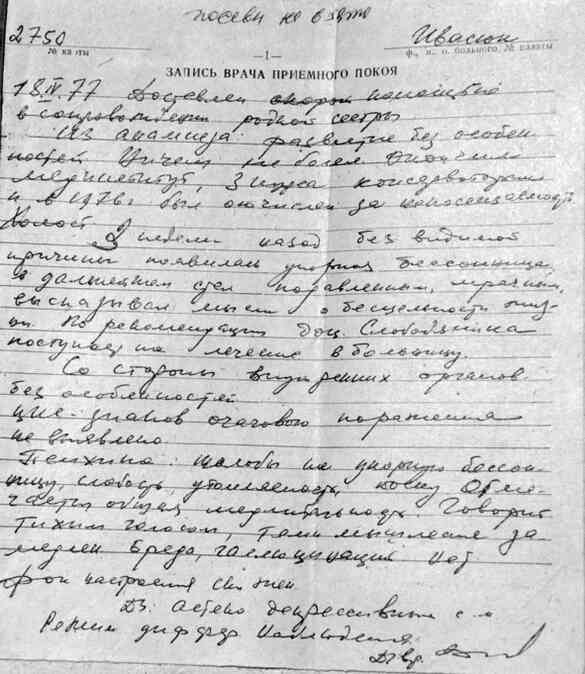 посевы не взяты
2750 Ивасюк
№ карты —1— ф., и., о. больного, № палаты
ЗАПИСЬ ВРАЧА ПРИЕМНОГО ПОКОЯ
18.IV.77 Доставлен скорой помощью
в сопровождении родной сестры
Из анамнеза: развитие без особен-
ностей Ничем не болел Окончил
мединститут, 3 курса консерватории
и в 1976 г был отчислен за
Холост
2 недели назад без видимой
причины появилась упорная бессонница,
в дальнейшем стал подавленным, мрачным,
высказывал мысли о бесцельности жиз-
ни. По рекомендации доц. Слободянина
поступает на лечение в больницу.
Со стороны внутренних органов
без особенностей
ЦНС: знаков очагового поражения
не выявлено
Психика: жалобы на упорную бессон-
ницу, слабость, утомляемость, Отме-
чается общая медлительность. Говорит
тихим голосом, темп мышления за-
медлен Бреда, галлюцинаций нет
фон настроения снижен
Дз. Астено депрессивный с-м
Режим наблюдения.
Д/вр.